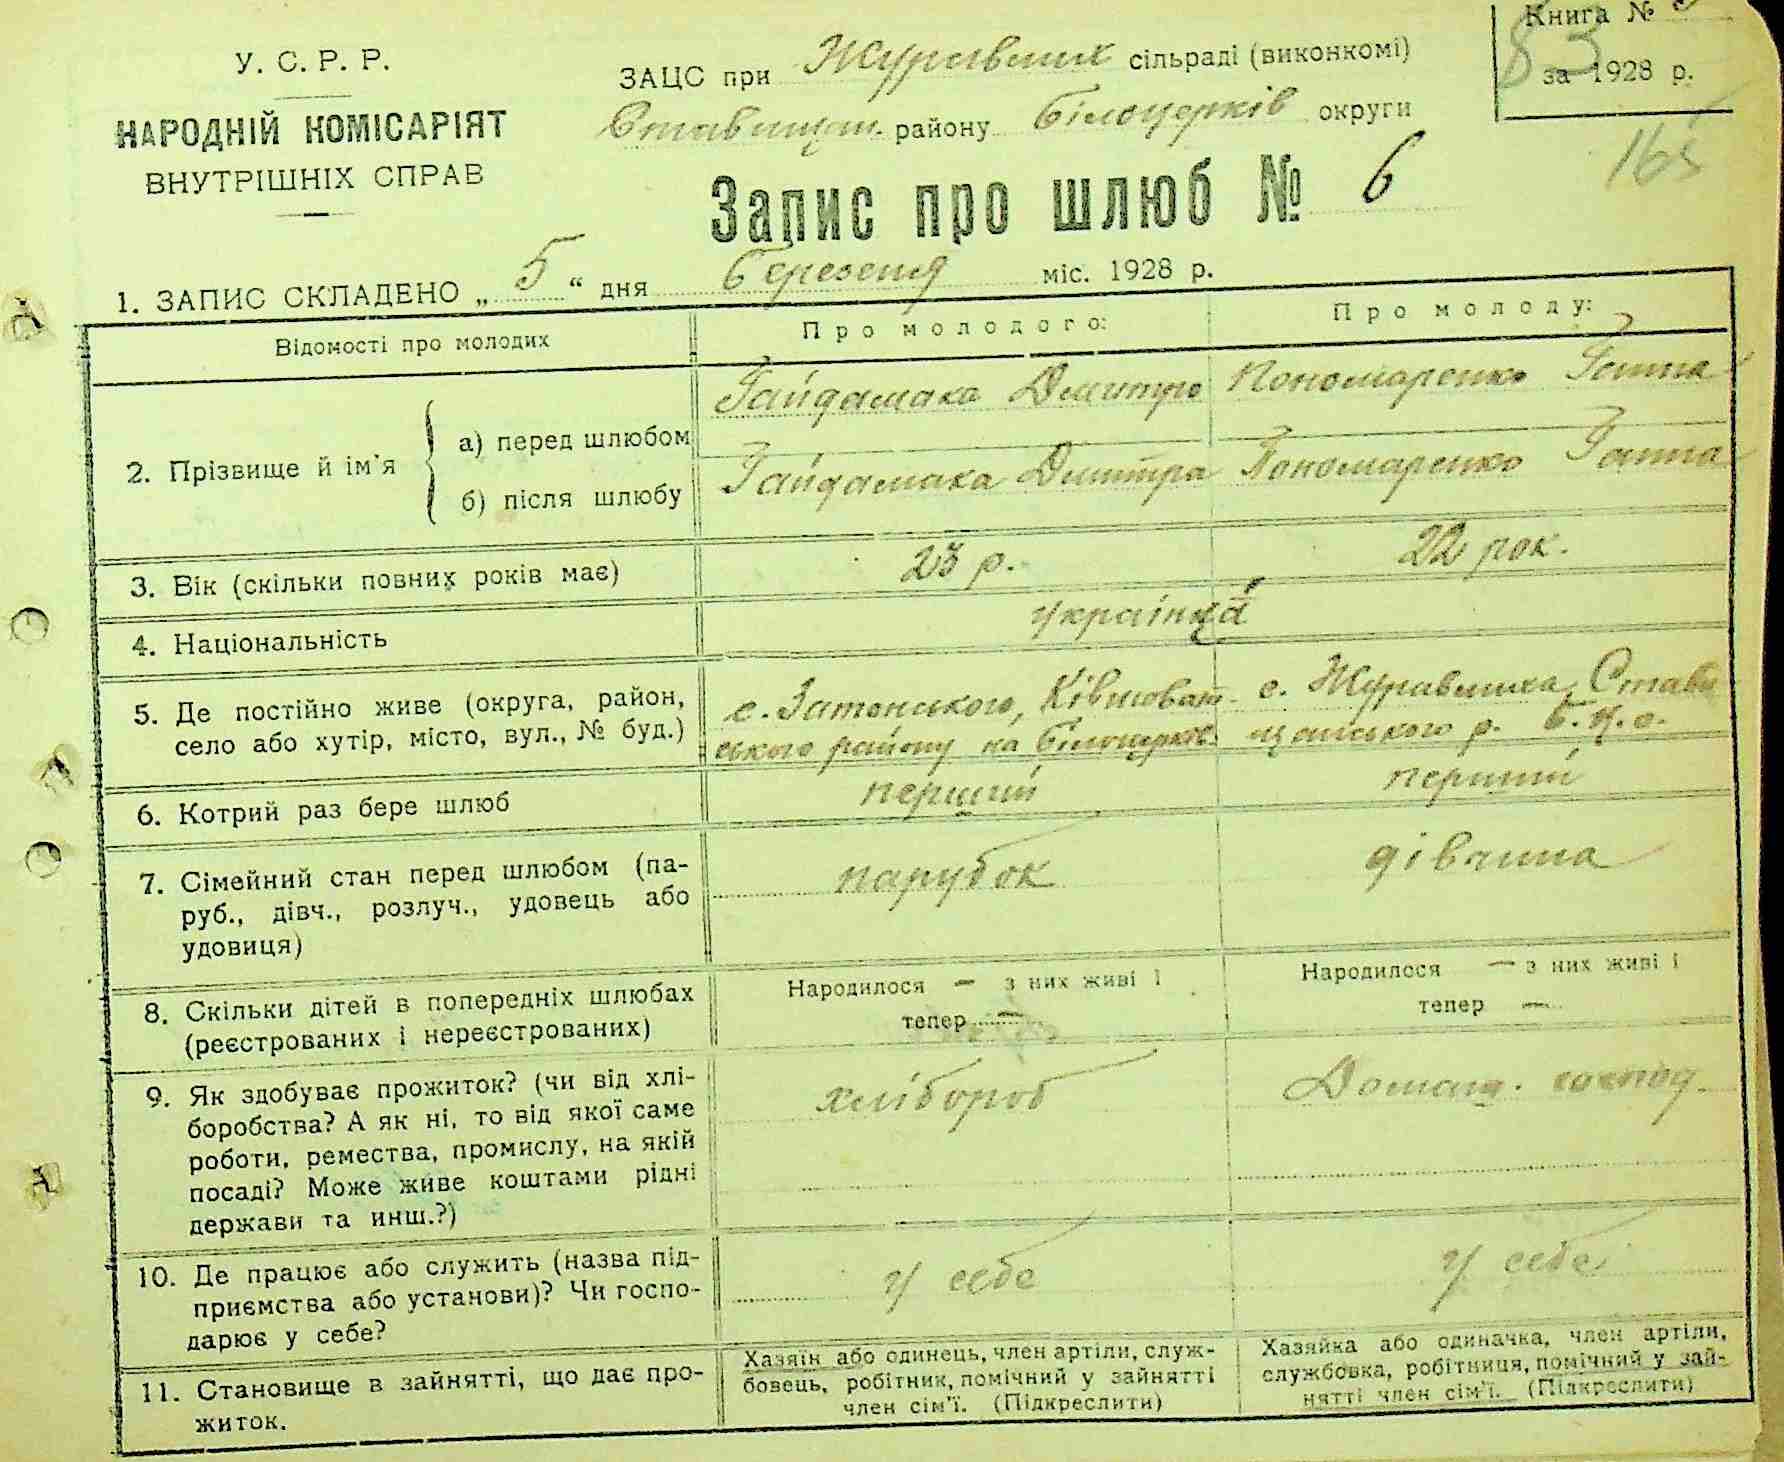 Книга №
83
за 1928 р.
165
У. С. Р. Р.
НАРОДНІЙ КОМІСАРІЯТ
ВНУТРІШНІХ СПРАВ
ЗАЦС при Журавлих сільраді (виконкомі)
Ставищан. району Білоцерків округи
Запис про шлюб № 6
1. ЗАПИС СКЛАДЕНО „ 5 “ дня березеня міс. 1928 р.
Відомості про молодих
Про молодого:
Про молоду:
2. Прізвище й ім'я
а) перед шлюбом
Гайдамака Дмитро
Пономаренко Ганна
б) після шлюбу
Гайдамака Дмитра
Пономаренко Ганна
3. Вік (скільки повних років має)
23 р.
22 рок.
4. Національність
українці
5. Де постійно живе (округа, район,
село або хутір, місто, вул., № буд.)
с. Затонського, Ківшоват-
ського району на Білоцерків.
с. Журавлиха Стави
щанського р. Б.Ц.о.
6. Котрий раз бере шлюб
перший
перший
7. Сімейний стан перед шлюбом (па-
руб., дівч., розлуч., удовець або
удовиця)
парубок
дівчина
8. Скільки дітей в попередніх шлюбах
(реєстрованих і нереєстрованих)
Народилося — з них живі і
тепер —
Народилося — з них живі і
тепер —
9. Як здобуває прожиток? (чи від хлі-
боробства? А як ні, то від якої саме
роботи, ремества, промислу, на якій
посаді? Може живе коштами рідні
держави та инш.?)
хлібороб
Домаш. господ.
10. Де працює або служить (назва під-
приємства або установи)? Чи госпо-
дарює у себе?
у себе
у себе
11. Становище в зайнятті, що дає про-
житок.
Хазяїн або одинець, член артіли, служ-
бовець, робітник, помічний у зайнятті
член сім'ї. (Підкреслити)
Хазяйка або одиначка, член артіли,
службовка, робітниця, помічний у зай-
нятті член сім'ї. (Підкреслити)